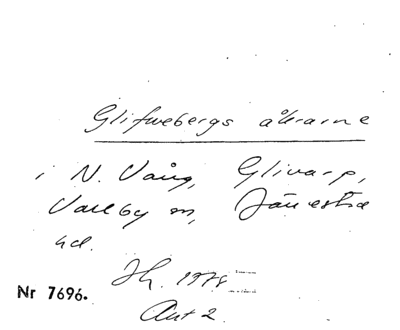 Glifwebergs åkrarne
i N. Vång, Glivarp,
Vallby m, Järrestad
hd.
Jh. 1978
Nr 7696.
Akt 2